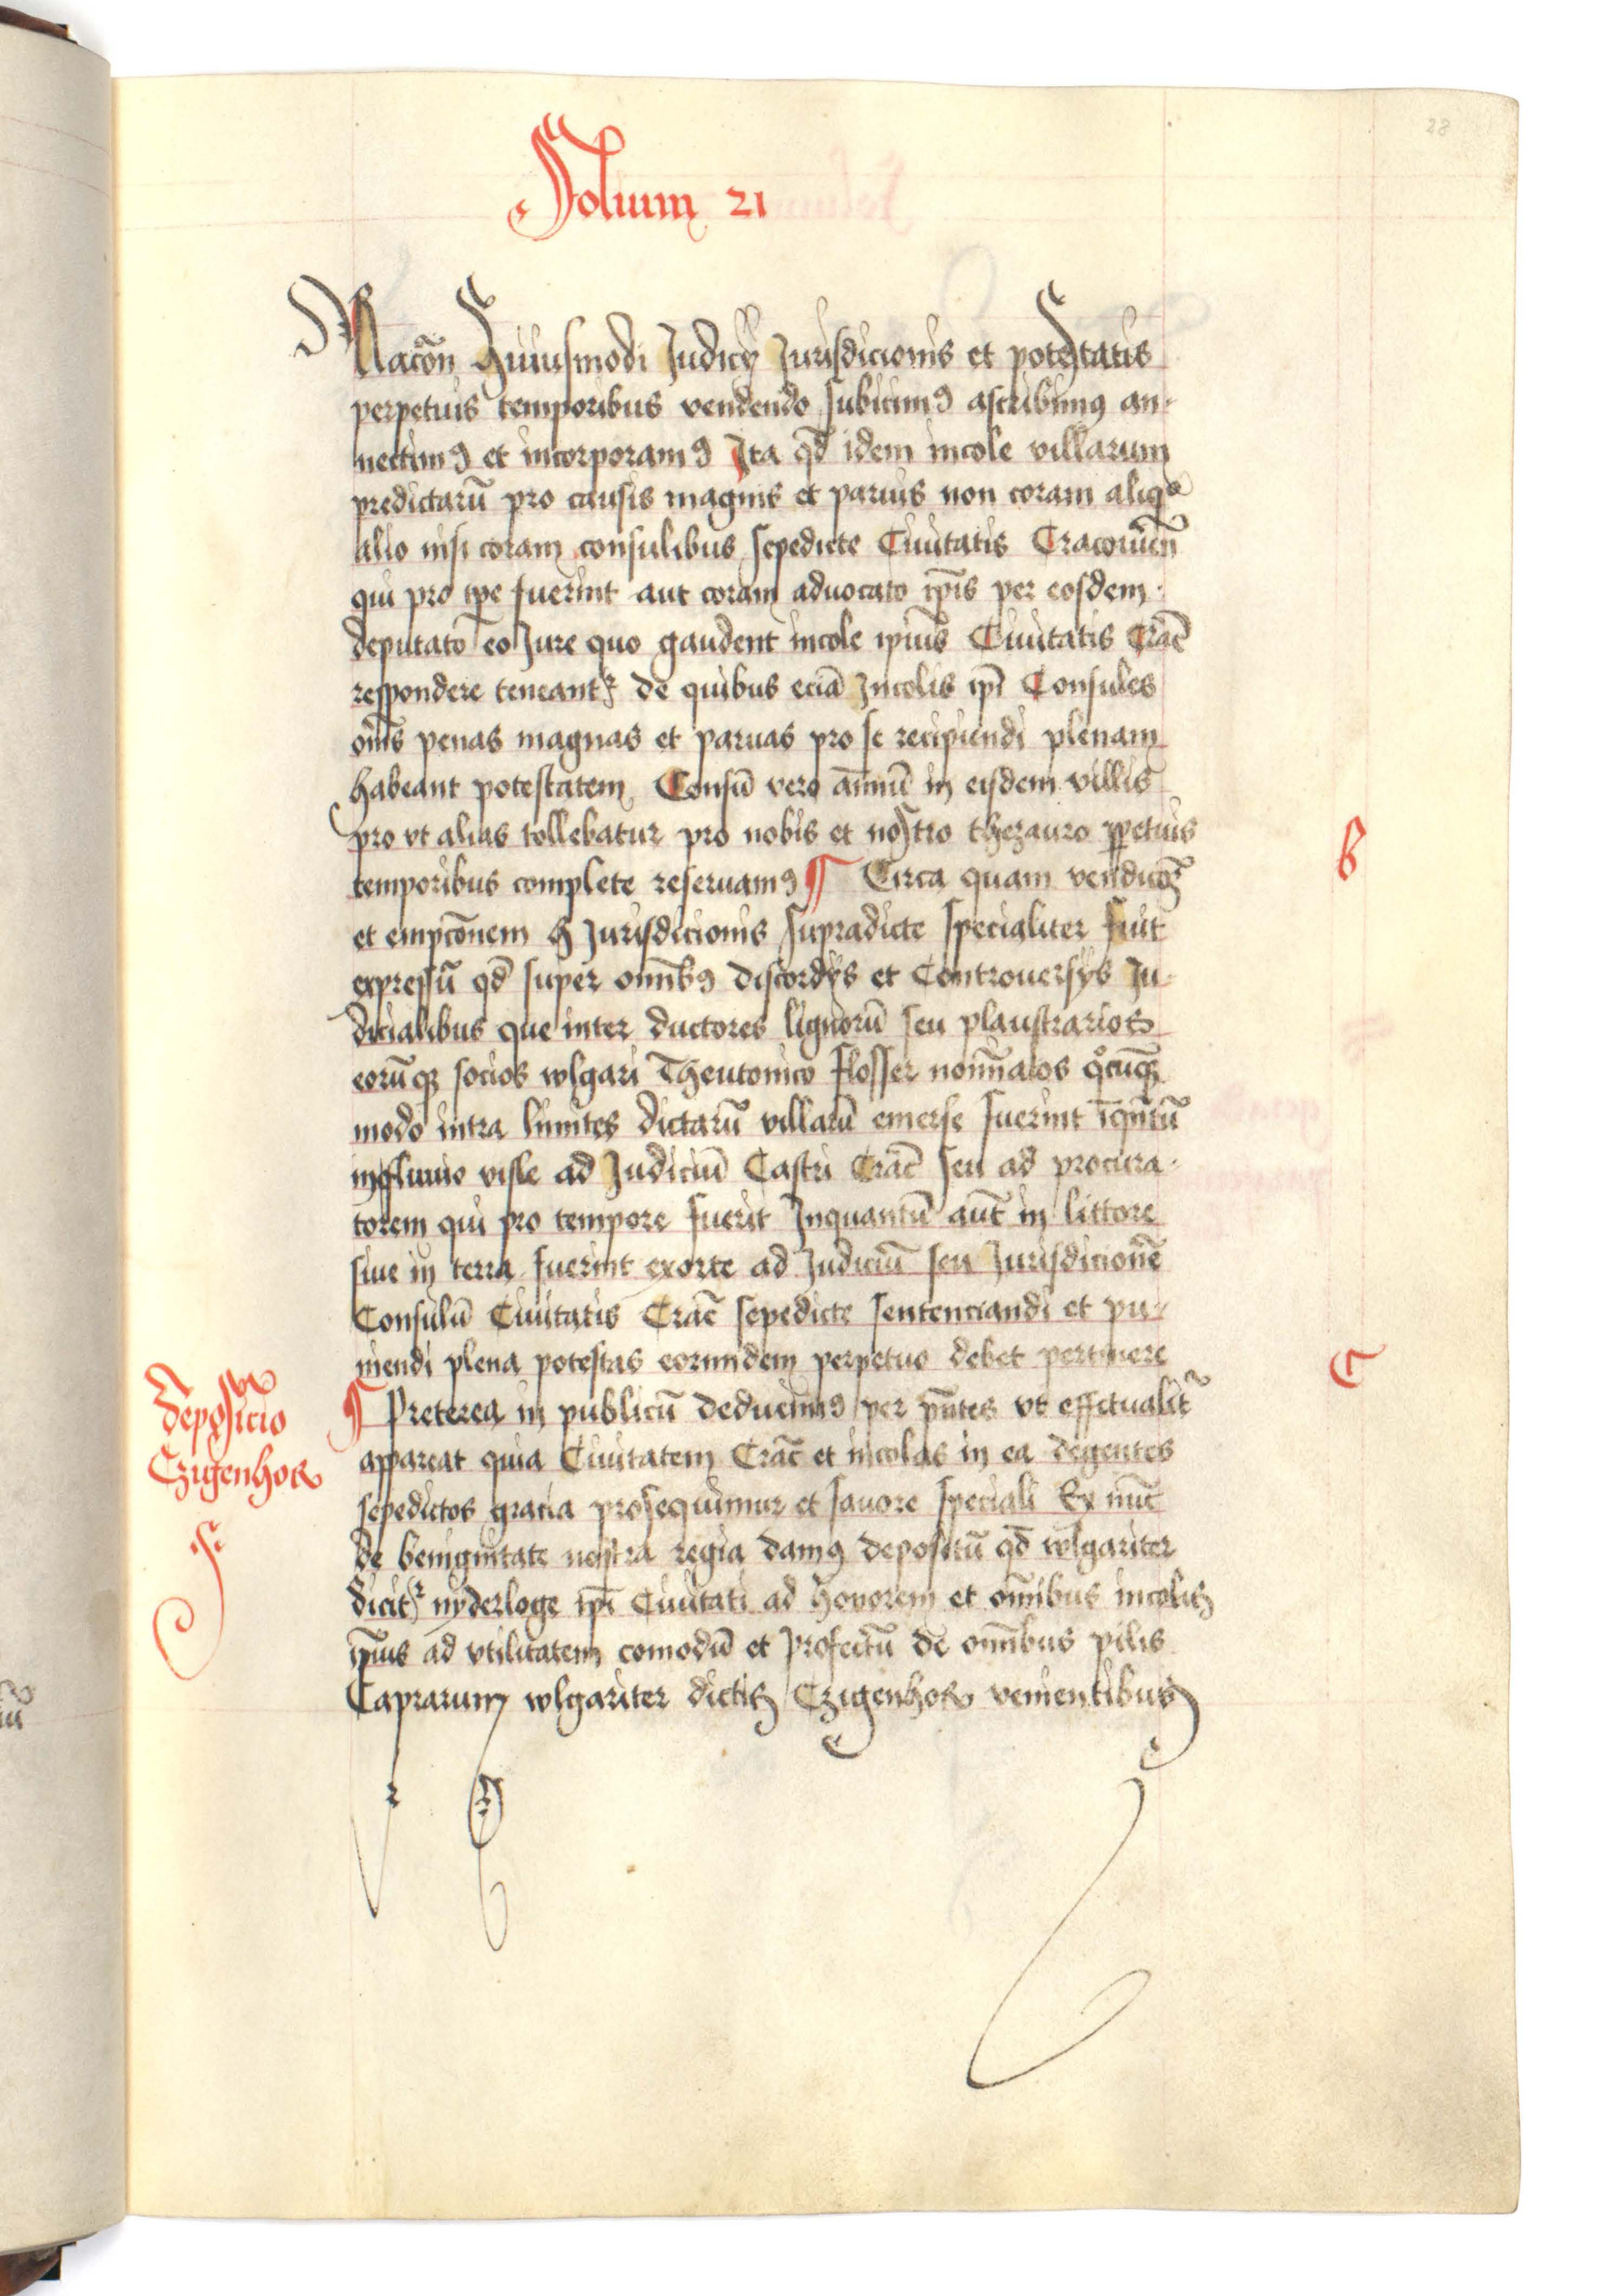 28
Folium 21
Racōn Huiusmodi Judicij Jurisdicionis et potestatis
perpetuis temporibus vendendo subicimꝰ ascribimꝰ an-
nectimꝰ et incorporamꝰ Ita qd̄ idem incole villarum
predictarū pro causis magnis et paruis non coram aliqͦ
alio nisi coram consulibus sepedicte Ciuitatis Cracouien̄
qui pro tp̄e fuerint aut coram aduocato ip̄is per eosdem
deputato eo Jure quo gaudent incole ip̄ius Ciuitatis Crac̄
respondere teneantꝛ de quibus eciā Incolis ip̄i Consules
om̄s penas magnas et paruas pro se recipiendi plenam
habeant potestatem Censū vero annuū in eisdem villis
pro vt alias tollebatur pro nobis et nostro thezauro ꝑpetuis
temporibus complete reseruamꝰ ¶ Circa quam vendicōꝫ
et empcōnem h Jurisdicionis supradicte specialiter fuit
expressū qd̄ super omībꝰ discordijs et Controuersijs Ju-
dicialibus que inter ductores lignorū seu plaustrarios
eorūqꝫ socios wlgari Theutonico flosser nomīatos qͦcūqꝫ
modo intra limites dictarū villarū emerse fuerint īqn̄tū
in fluuio visle ad Judiciū Castri Crac̄ seu ad procura-
torem qui pro tempore fuerit Inquantū aut̄ in littore
siue in terra fuerint exorte ad Judiciū seu Jurisdicionē
Consulū Ciuitatis Crac̄ sepedicte sentenciandi et pu-
niendi plena potestas eorundem perpetuo debet pertinere
¶ Preterea in publicū deducimꝰ per pn̄tes vt effectualit̄
appareat quia Ciuitatem Crac̄ et incolas in ea degentes
sepedictos gracia prosequimur et fauore speciali Ex nūc
de benignitate nostra regia damꝰ depositū qd̄ wlgariter
dicitꝛ nyderloge ip̄i Ciuitati ad honorem et omībus incolis
ip̄ius ad vtilitatem comodū et profectū de omībus pilis
Caprarum wlgariter dictis Czigenhor venientibus
B
C
deposicio
Czigenhor